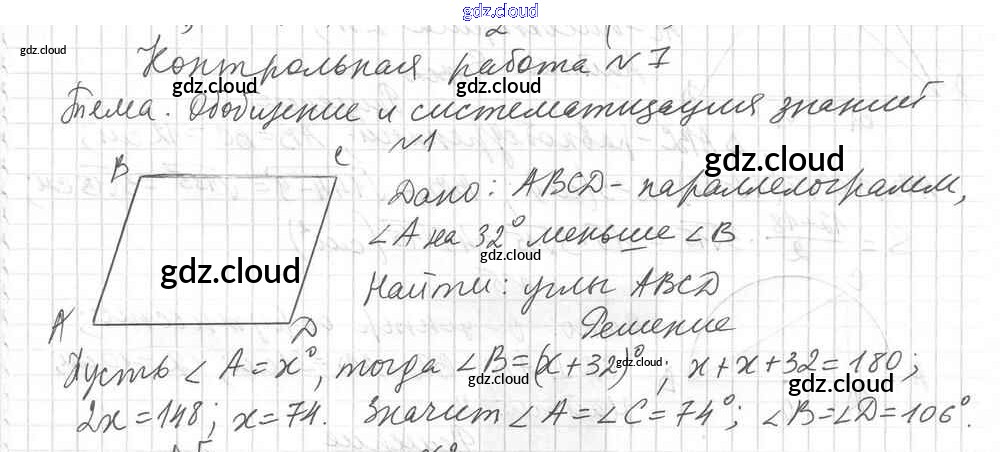 gdz.cloud
gdz.cloud
Контрольная работа N 7
gdz.cloud gdz.cloud
Тема. Обобщение и систематизация знаний
N1
gdz.cloud
B C
Дано: ABCD - параллелограмм,
∠A на 32° меньше ∠B
gdz.cloud
gdz.cloud
Найти: углы ABCD
A D
Решение
Пусть ∠A = x°, тогда ∠B = (x + 32)°; x + x + 32 = 180;
gdz.cloud gdz.cloud gdz.cloud
2x = 148; x = 74. Значит ∠A = ∠C = 74°; ∠B = ∠D = 106°.